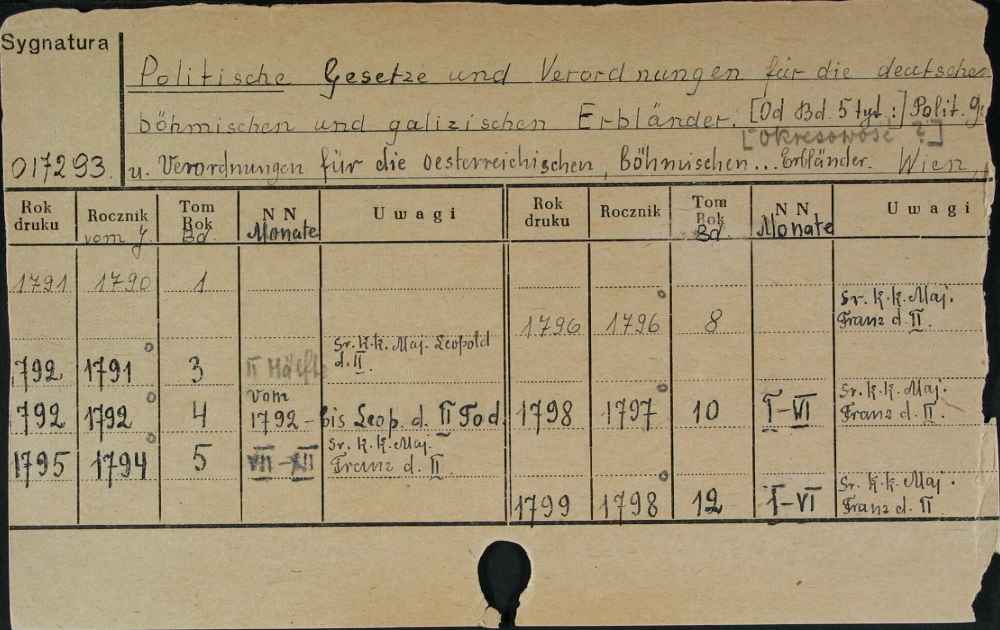 Sygnatura
Politische Gesetze und Verordnungen für die deutschen
böhmischen und galizischen Erbländer. [Od Bd. 5 tyt:] Polit. Ge
[Okresowość ?]
017293. u. Verordnungen für die oesterreichischen, böhmischen... Erbländer. Wien,
Rok druku Rocznik Tom Rok N N Uwagi Rok druku Rocznik Tom Rok N N Uwagi
vom J. Bd. Monate Bd. Monate
1791 1790 1
1796 1796 8 Sr. k. k. Maj. Franz d. II.
1792 1791 3 II Hälfte Sr. k. k. Maj. Leopold d. II.
1792 1792 4 vom 1792 - bis Leop. d. II Tod.
1798 1797 10 I-VI Sr. k. k. Maj. Franz d. II.
1795 1794 5 VII-XII Sr. k. k. Maj. Franz d. II.
1799 1798 12 I-VI Sr. k. k. Maj. Franz d. II